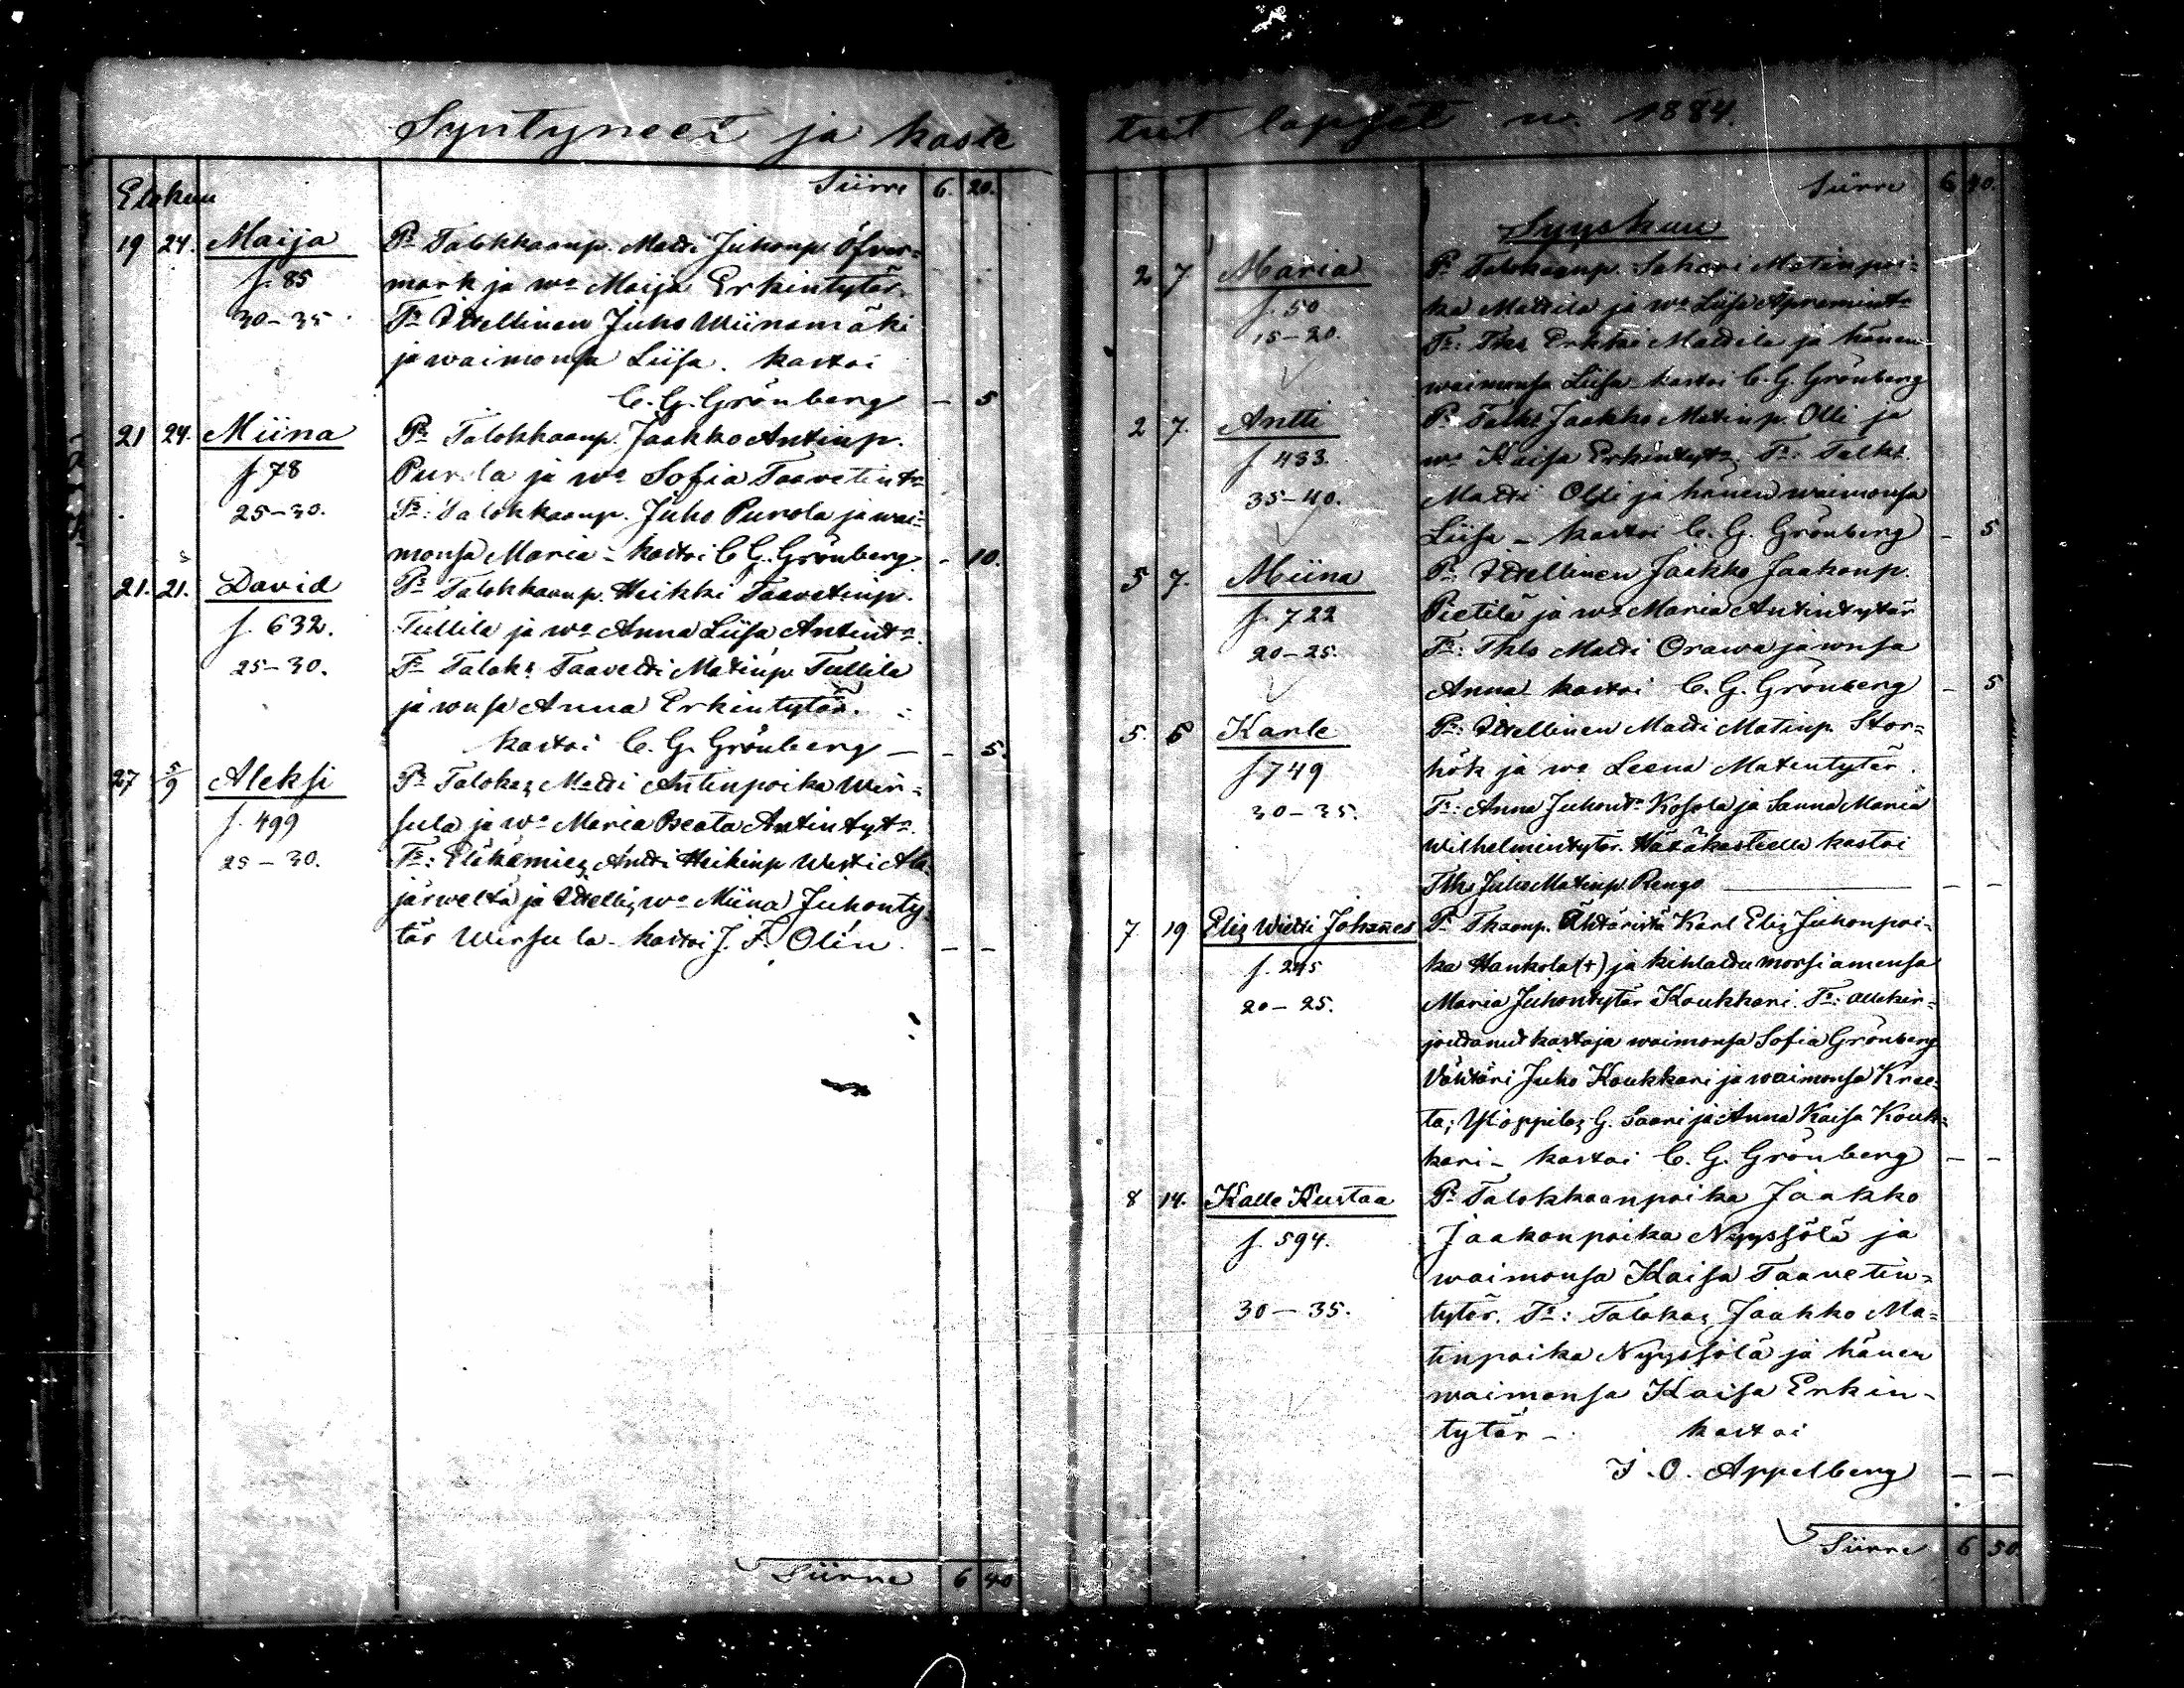 Syntyneet ja kaste
Elokuu
Siirre 6. 20.
19 24. Maija Pr. Talokkaanp. Matti Juhonp. Öfver=
f. 85 mark ja wo Maija Erkintytär.
30-35 Tr. Itsellinen Juho Wiinamäki
ja waimonsa Liisa. kastoi
C. G. Grönberg — 5
21 24. Miina Pr. Talokkaanp. Jaakko Antinp.
f 78 Purola ja wo Sofia Taavetint.
25-30. Tr: Talokkaanp. Juho Purola ja wai=
monsa Maria - kastoi C. G. Grönberg. - 10.
21. 21. David Pr. Talokkaanp. Heikki Taavetinp.
f. 632. Tullila ja wo Anna Liisa Antint.
25-30. Tr. Talok. Taavetti Matinp. Tullila
ja wnsa Anna Erkintytär.
kastoi C. G. Grönberg — - 5.
27 5/9 Aleksi Pr. Talokas Matti Antinpoika Wir=
f. 499 sula ja wo Maria Beata Antintyt.
25-30. Tr: Elikämies Antti Heikinp. Westi Ala=
järweltä ja Itsellis wo Miina Juhonty
tär Wirsula - kastoi J. F. Olin. — —
Siirre 6 40
tut lapset w. 1884.
Siirre 6 40.
Syyskuu
2 7 Maria Pr. Talokaanp. Sakari Matinpoi=
f. 50 ka Mattila ja wo Liisa
15-20. Tr: Tks Erkki Mattila ja hänen
waimonsa Liisa - kastoi C. G. Grönberg
2 7. Antti Pr. Talks Jaakko Matinp. Olli ja
f 433. wo Kaisa Erkintyt. Tr: Talks.
35-40. Matti Olli ja hänen waimonsa
Liisa - kastoi C. G. Grönberg — 5
5 7. Miina Pr: Itsellinen Jaakko Jaakonp.
f. 722 Pietilä ja wo Maria Antintytär
20-25. Tr: Tkls Matti Orawa ja wnsa
Anna - kastoi C. G. Grönberg — 5
5. 6 Karle Pr: Itsellinen Matti Matinp. Stor=
f 749 hök ja wo Leena Matintytär.
30-35. Tr: Anna Juhont. Kosola ja Sanna Maria
Wilhelmintytär. Hätäkasteella kastoi
Tks Juho Matinp. Rengo — —
7. 19 Elis Wihti Johannes Pr. Tkaanp. Ähtäristä Karl Elis Juhonpoi-
f. 245 ka Hankola (+) ja kihlattu morsiamensa
20-25. Maria Juhontytär Koukkari. Tr: allekir=
joittanut kastaja waimonsa Sofia Grönberg
Vahtäri Juho Koukkari ja waimonsa Kree=
ta; Ylioppilas G. Saari ja Anna Kaisa Kouk=
kari - kastoi C. G. Grönberg — —
8 14. Kalle Kustaa Pr. Talokkaanpoika Jaakko
f. 594. Jaakonpoika Nyyssölä ja
waimonsa Kaisa Taavetin=
30-35. tytär. Tr: Talokas Jaakko Ma=
tinpoika Nyyssölä ja hänen
waimonsa Kaisa Erkin-
tytär - kastoi
J. O. Appelberg — —
Siirre 6 50.